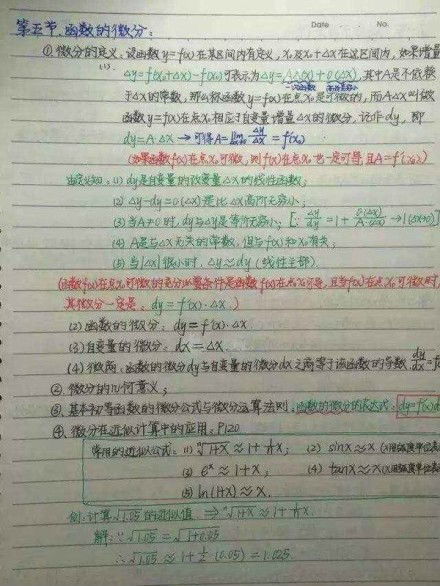 Date No.
第五节、函数的微分:
①微分的定义: 设函数y=f(x)在某区间内有定义, x₀及x₀+Δx在这区间内, 如果增量
(1). Δy=f(x₀+Δx)-f(x₀)可表示为Δy=AΔx+o(Δx), 其中A是不依赖
于Δx的常数, 那么称函数y=f(x)在点x₀是可微的, 而AΔx叫做
函数y=f(x)在点x₀相应于自变量增量Δx的微分, 记作dy, 即
dy=A·Δx → 可得A=lim Δy/Δx = f'(x₀)
(如果函数f(x)在点x₀可微, 则f(x)在点x₀也一定可导, 且A=f'(x₀))
由定义知: (1) dy是自变量的改变量Δx的线性函数;
(2) Δy-dy=o(Δx)是比Δx高阶无穷小;
(3) 当A≠0时, dy与Δy是等价无穷小; [∵ Δy/dy=1+o(Δx)/A·Δx →1(Δx→0)
(4) A是与Δx无关的常数, 但与f(x)和x₀有关;
(5) 当|Δx|很小时, Δy≈dy (线性主部)
(函数f(x)在点x₀可微的充分必要条件是函数f(x)在点x₀可导, 且当f(x)在点x₀可微时,
其微分一定是: dy=f'(x₀)·Δx.)
(2) 函数的微分: dy=f'(x)·Δx
(3) 自变量的微分: dx=Δx.
(4) 微商: 函数的微分dy与自变量的微分dx之商等于该函数的导数 dy/dx=f
②. 微分的几何意义;
③. 基本初等函数的微分公式与微分运算法则. 函数的微分的表达式: dy=f'(x)d
④. 微分在近似计算中的应用. P120
常用的近似公式: (1) ⁿ√1+x ≈ 1+1/n x; (2) sinx≈x (x用弧度单位表
(3) eˣ≈1+x; (4) tanx≈x (x用弧度单位表
(5) ln(1+x)≈x.
例: 计算√1.05的近似值 ⇒ ⁿ√1+x ≈ 1+1/n x.
解: ∵√1.05 = √1+0.05
∴√1.05 ≈ 1+1/2 (0.05) = 1.025